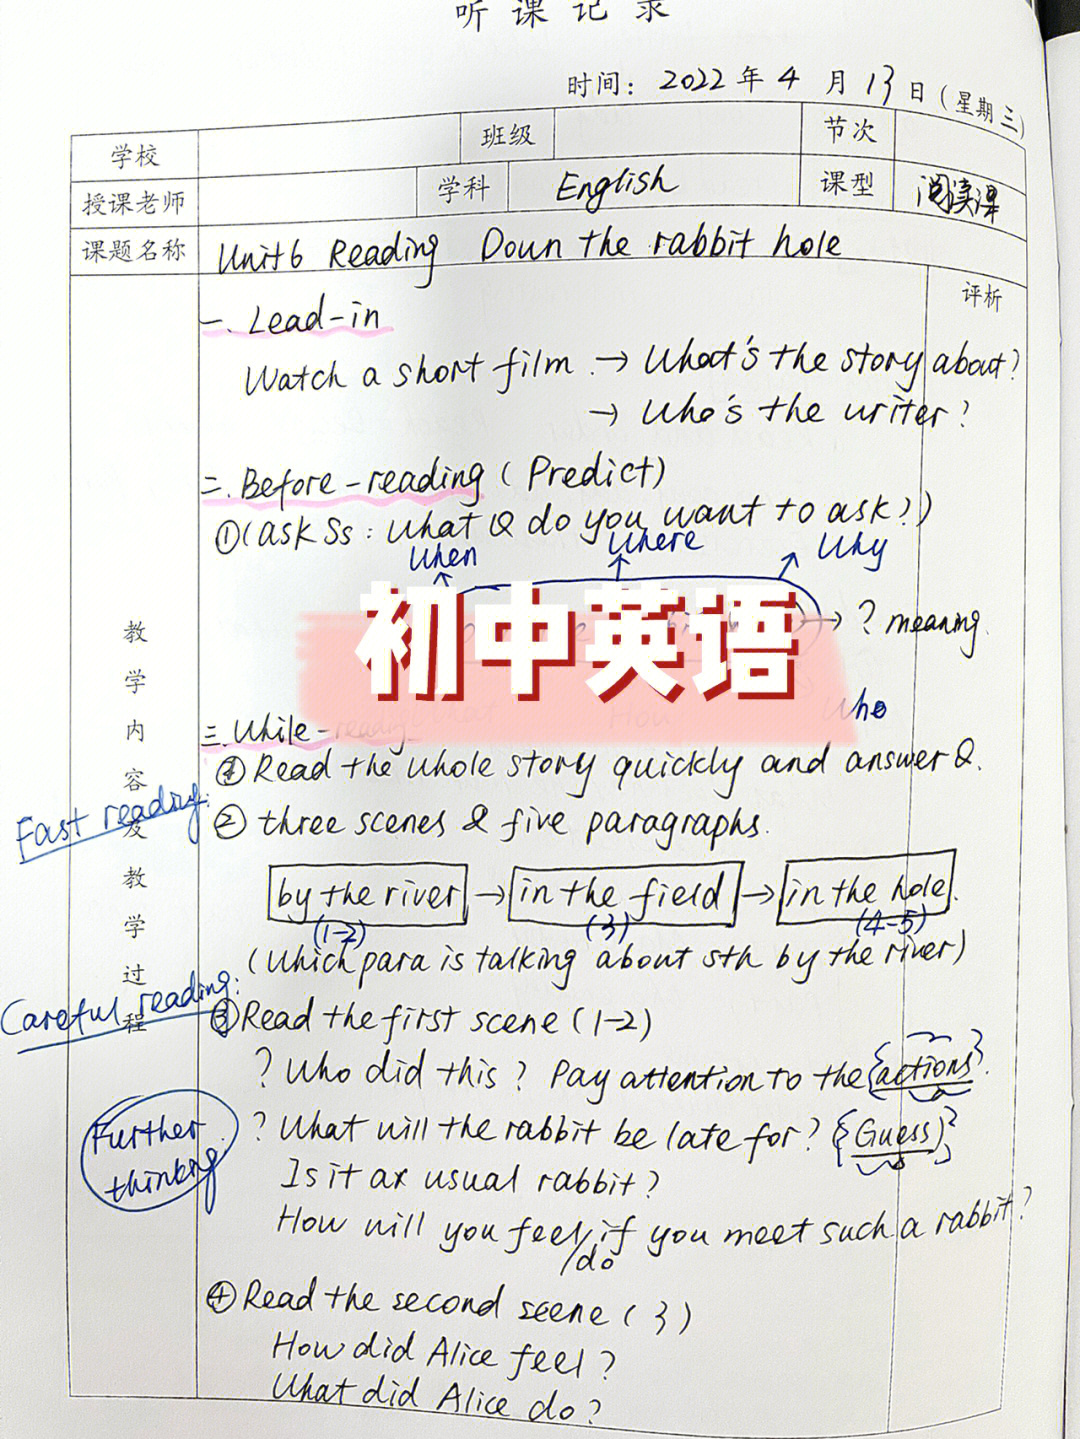 听课记录
时间: 2022年4月13日(星期三)
学校 班级 节次
授课老师 学科 English 课型 阅读课
课题名称 Unit6 Reading Down the rabbit hole
评析
一. Lead-in
Watch a short film. → What's the story about?
→ Who's the writer?
二. Before-reading (Predict)
①(ask Ss: What Q do you want to ask?)
When Where Why
初中英语
→ ? meaning.
How Who
三. While-reading
① Read the whole story quickly and answer Q.
Fast reading:
② three scenes & five paragraphs.
by the river → in the field → in the hole.
(1-2) (3) (4-5)
(Which para is talking about sth by the river)
Careful reading:
③ Read the first scene (1-2)
? Who did this? Pay attention to the {actions}.
Further thinking
? What will the rabbit be late for? {(Guess)}
Is it a usual rabbit?
How will you feel/do if you meet such a rabbit?
④ Read the second scene (3)
How did Alice feel?
What did Alice do?
教学内容及教学过程